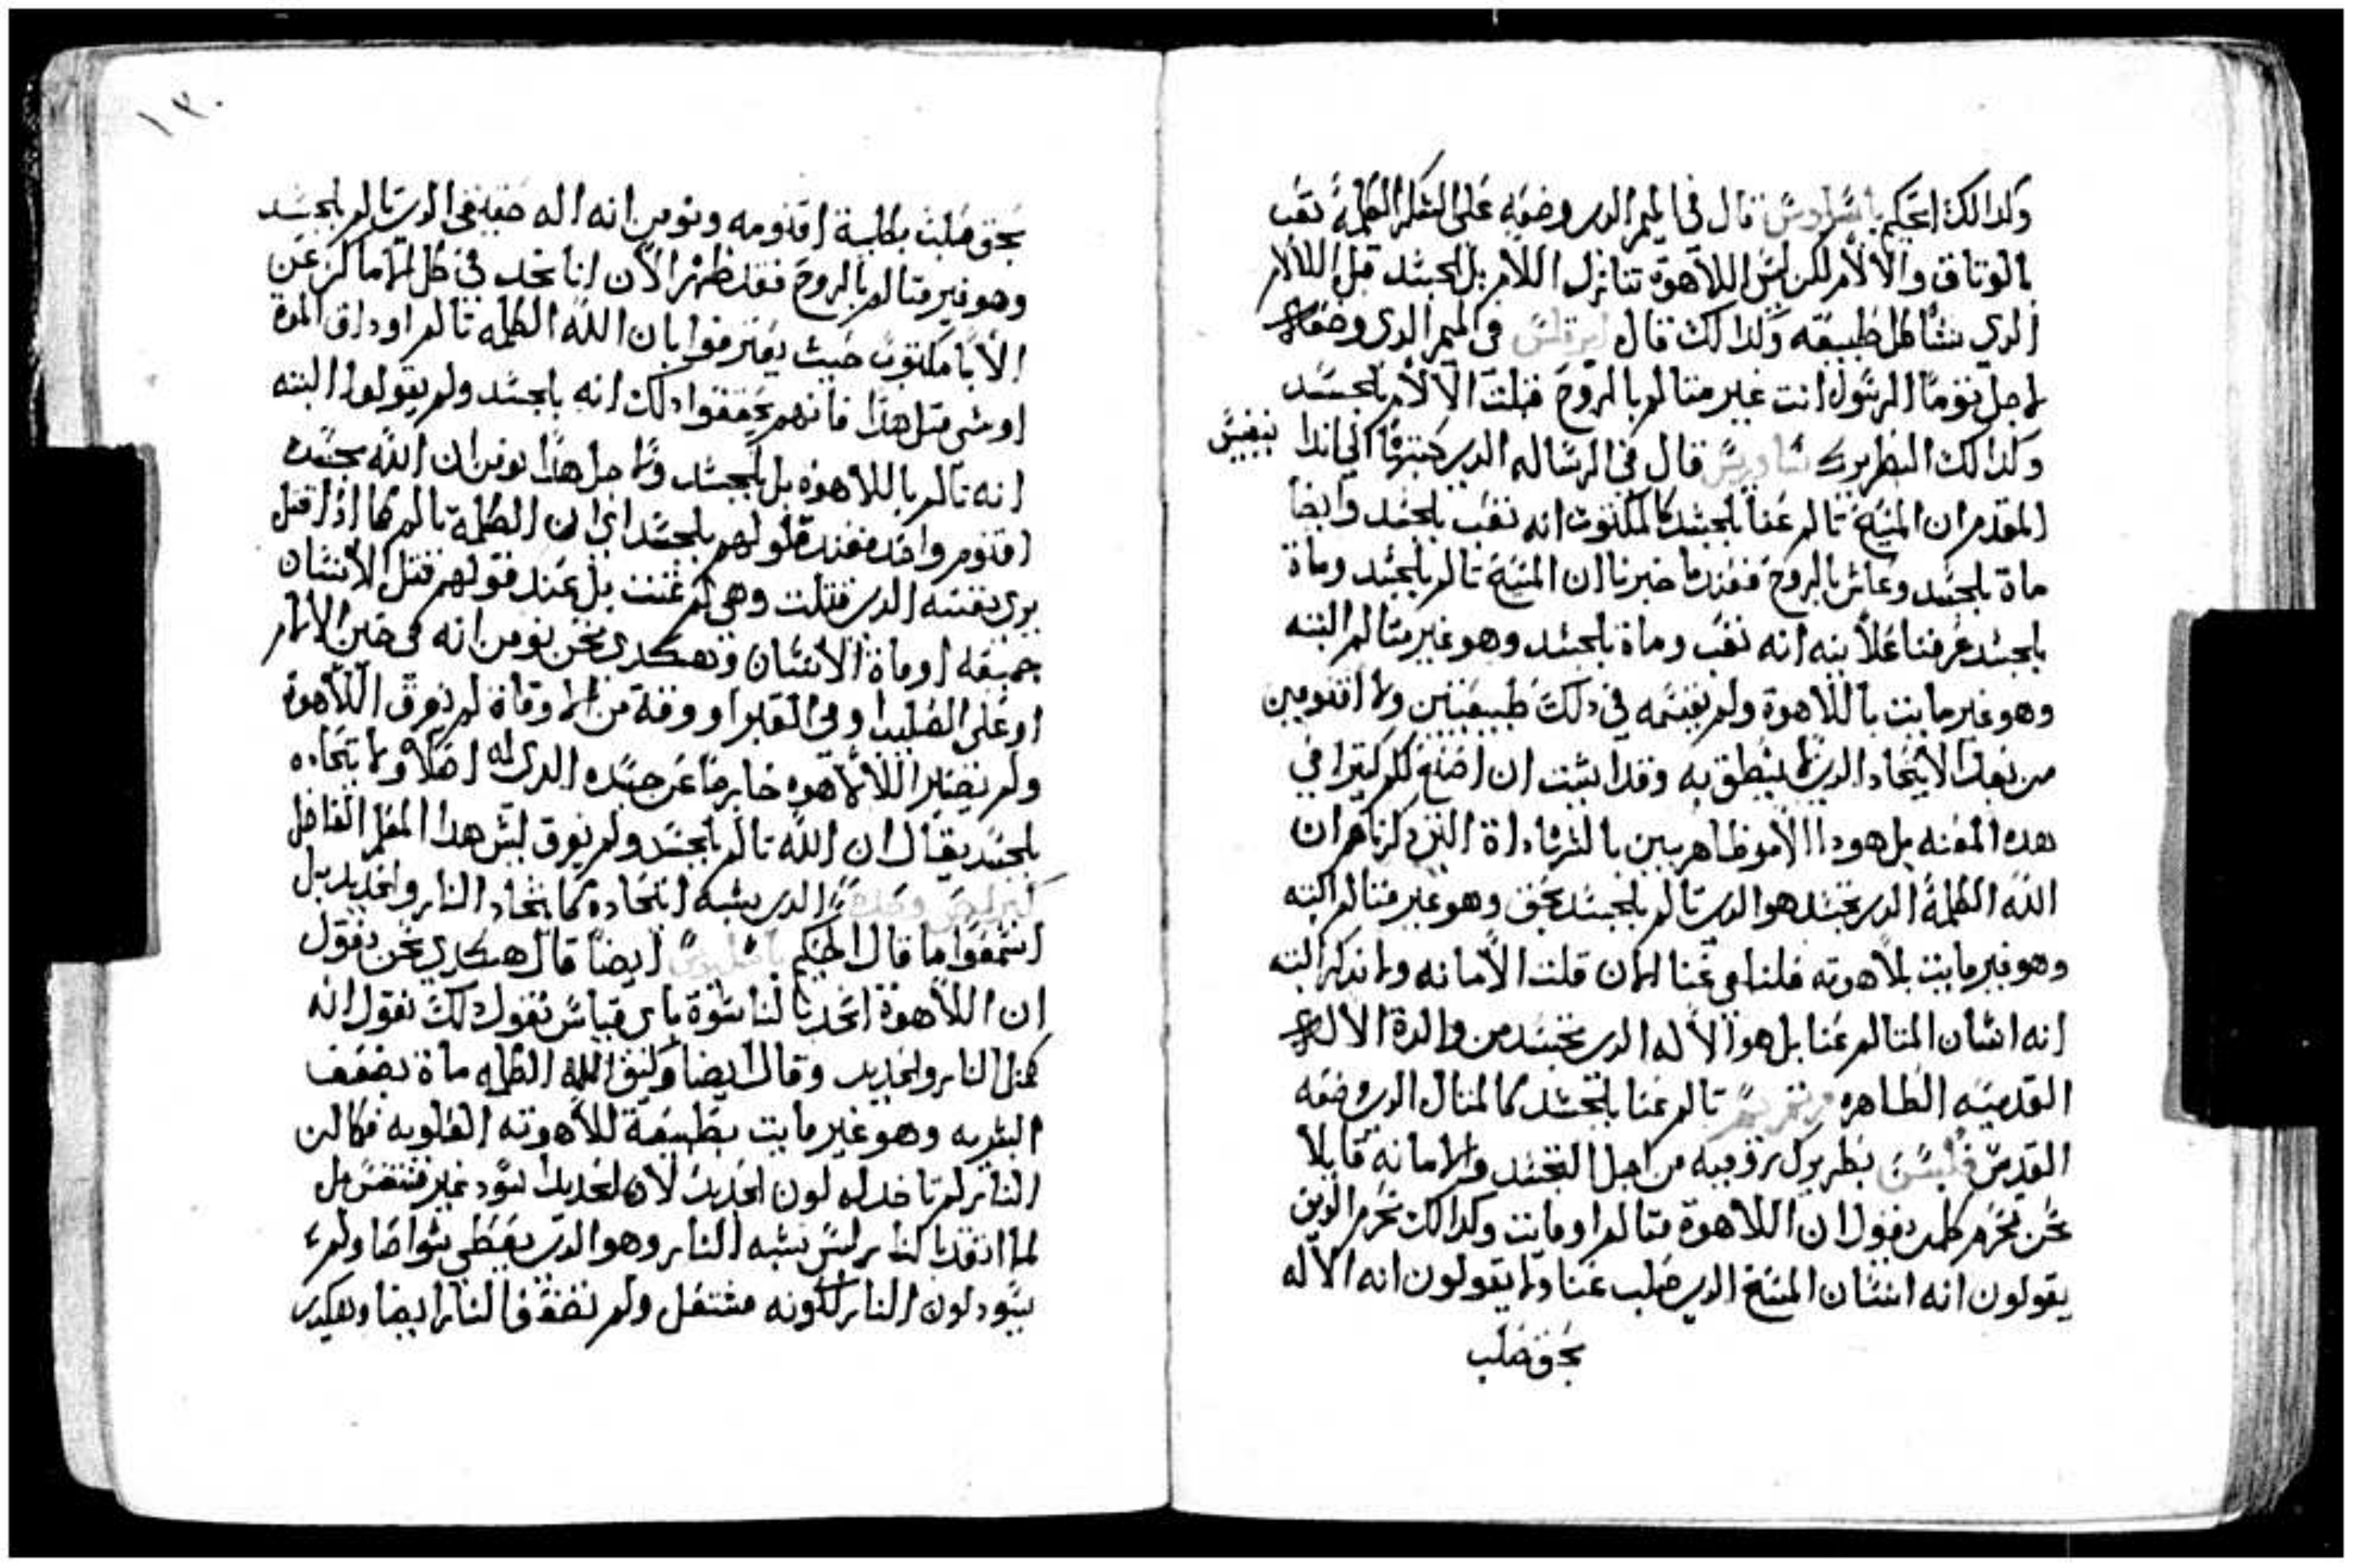 وكدالك الحكيم باسيليوس قال في الميمر الدى وضعه على الشكر الكلمة تعب
بالوتاق والالام لكن ليس اللاهوة تنازل اللام بل الجسد قبل اللالام
الدي يشاكل طبيعته وكدالك قال في الميمر الدى وضعه
لاجل توما الرسول انت غير متالم بالروح قبلت الالام بالجسد
وكدالك البطريرك ساويرس قال في الرساله الدى كتبها الى اندا بنفيس
المقدم ان المسيح تالم عنا بالجسد كالمكتوب انه تعب بالجسد وايضا
ماة بالجسد وعاش بالروح فعندما خبرنا ان المسيح تالم بالجسد وماة
بالجسد عرفنا علانيه انه تعب وماة بالجسد وهو غير متالم البته
وهو غير مايت باللاهوة ولم نقسمه في دلك طبيعتين ولا اقنومين
من بعد الاتحاد الدى لا ينطق به وقد ابتت ان اضع لكم كتيرا في
هده المعنه بل هودا الامر ظاهر بين بالشهاداة التى دكرناهم ان
الله الكلمة الدى تجسد هو الدى تالم بالجسد بحق وهو غير متالم البته
وهو غير مايت بلاهوته فلنا في عنا الان قلت الامانه ولا ندكر البته
انه انسان المتالم عنا بل هو الاله الدى تجسد من والدة الاله
القديسه الطاهره مرتمريم تالم عنا بالجسد كالمتال الدى وضعه
القديس بطريرك روميه من اجل التجسد والامانه قايلا
نحن نحرم كلمن يقول ان اللاهوة متالم او مايت وكدالك نحرم الدين
يقولون انه انسان المسيح الدى صلب عنا ولا يقولون انه الاله
بحق صلب
١٣٠
بحق صلب بكلية اقنومه ونومن انه اله حقيقي الدى تالم بالجسد
وهو غير متالم بالروح فقد ظهر الان اننا نجد في كل اماكن عن
الابا مكتوب حيث يعترفوا بان الله الكلمه تالم او داق الموة
او شى متل هدا فانهم يحققوا دلك انه بالجسد ولم يقولوا البته
انه تالم باللاهوة بل بالجسد ولاجل هدا نومن ان الله بجسده
اقنوم واحد فعند قولهم بالجسد اى ان الكلمة تالم كما ادا قتل
برى نفسه الدى قتلت وهى لم عنت بل عند قولهم قتل الانسان
جميعه او ماة الانسان وهكدى نحن نومن انه في حين الالام
او على الصليب او في القبر او وقة من الاوقاة لم يفرق اللاهوة
ولم يصير اللاهوة خارجا عن جسده الدى له اصلا ولا تحاده
بالجسد يقال ان الله تالم بالجسد ولم يفرق ليس هدا المعلم الفاضل
كيرلص وحده الدى يشبه اتحاده كاتحاد النار والحديد بل
اسمعوا ما قال الحكيم باسيليوس ايضا قال هكدى نحن نقول
ان اللاهوة اتحد بالناسوة باى قياس نقول دلك نقول انه
كمتل النار والحديد وقال ايضا وكيف الله الكلمه ماة بضعف
البشريه وهو غير مايت بطبيعة للاهوته العلويه فكما ان
النار لم تاخد له لون الحديد لان الحديد اسود غير متنفس بل
لما اتقد بالنار ليس يشبه النار وهو الدى يعطى شواصا ولم
يسود لون النار لكونه مشتعل ولم تضعف النار ايضا وهكدى